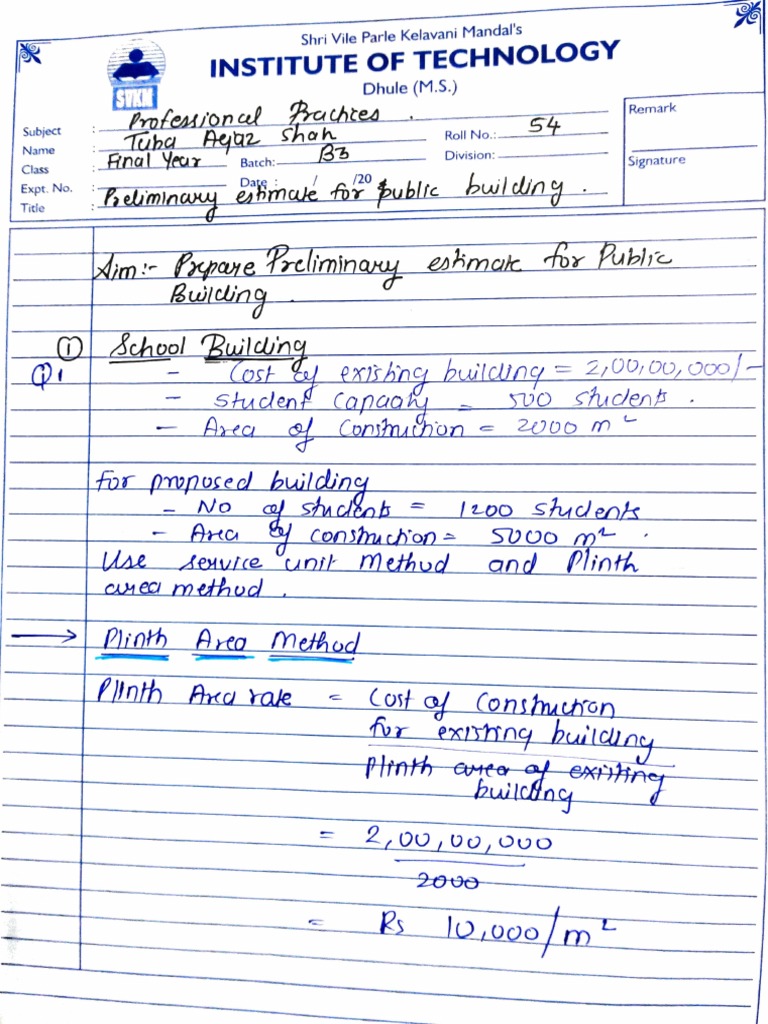 Shri Vile Parle Kelavani Mandal's
INSTITUTE OF TECHNOLOGY
Dhule (M.S.)
SVKM
Subject : Professional Practices .
Name : Tuba Aejaz Shah Roll No.: 54
Class : Final Year Batch: B3 Division:
Expt. No. : Date : / /20
Title : Preliminary estimate for public building .
Remark
Signature
Aim:- Prepare Preliminary estimate for Public
Building .
① School Building
Q1 - Cost of existing building = 2,00,00,000/-
- Student capacity = 500 students .
- Area of construction = 2000 m²
for proposed building
- No of students = 1200 students
- Area of construction = 5000 m² .
Use service unit Method and Plinth
area method .
→ Plinth Area Method
Plinth Area rate = Cost of Construction
for existing building
Plinth area of existing
building
= 2,00,00,000
2000
= Rs 10,000/m²